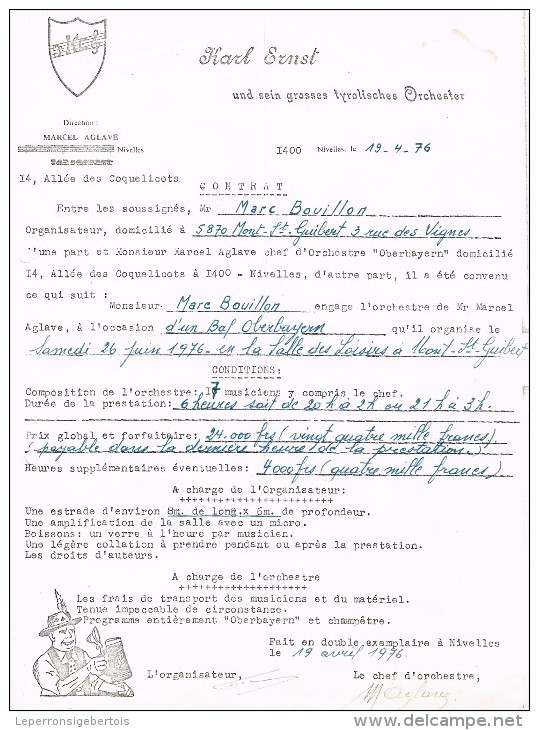 Karl Ernst
und sein grosses tyrolisches Orchester
Direction :
MARCEL AGLAVE
Nivelles
I400 Nivelles, le 19-4-76
I4, Allée des Coquelicots
CONTRAT
Entre les soussignés, Mr Marc Bouillon
Organisateur, domicilié à 5870 Mont-St-Guibert 3 rue des Vignes
d'une part et Monsieur Marcel Aglave chef d'Orchestre "Oberbayern" domicilié
I4, Allée des Coquelicots à I400 - Nivelles, d'autre part, il a été convenu
ce qui suit :
Monsieur Marc Bouillon engage l'orchestre de Mr Marcel
Aglave, à l'occasion d'un Bal Oberbayern qu'il organise le
Samedi 26 juin 1976 - en la Salle des Loisirs à Mont-St-Guibert
CONDITIONS:
Composition de l'orchestre: 17 musiciens y compris le chef.
Durée de la prestation: 6 heures soit de 20h à 2h ou 21h à 3h.
Prix global et forfaitaire: 24.000 frs (vingt quatre mille francs)
(payable dans la dernière heure de la prestation)
Heures supplémentaires éventuelles: 4000 frs (quatre mille francs)
A charge de l'Organisateur:
++++++++++++++++++++++++++
Une estrade d'environ 8m. de long. x 6m. de profondeur.
Une amplification de la salle avec un micro.
Boissons: un verre à l'heure par musicien.
Une légère collation à prendre pendant ou après la prestation.
Les droits d'auteurs.
A charge de l'orchestre
+++++++++++++++++++
Les frais de transport des musiciens et du matériel.
Tenue impeccable de circonstance.
Programme entièrement "Oberbayern" et champêtre.
Fait en double exemplaire à Nivelles
le 19 avril 1976
L'organisateur, Le chef d'orchestre,
MAglave
Leperronsigebertois
www.delcampe.net